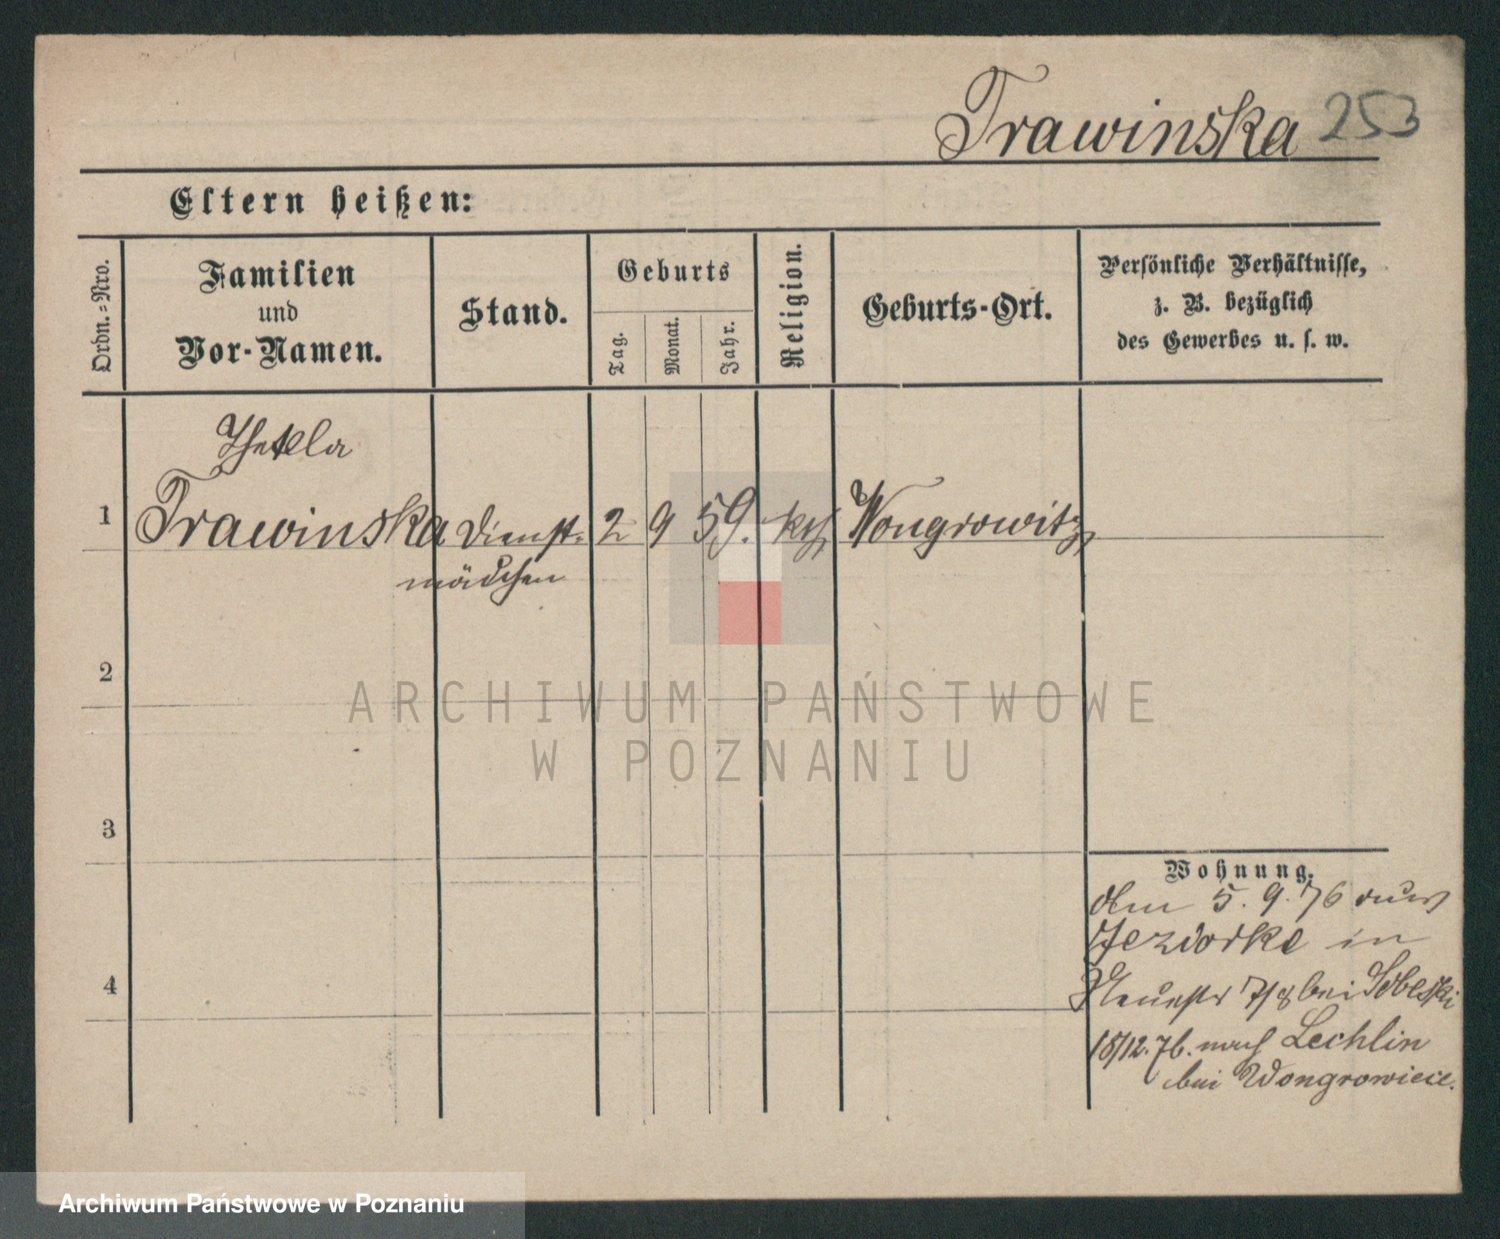 Trawinska 253
Eltern heißen:
Ordn.-Nro.
Familien
und
Vor-Namen.
Stand.
Geburts
Tag.
Monat.
Jahr.
Religion.
Geburts-Ort.
Persönliche Verhältnisse,
z. B. bezüglich
des Gewerbes u. s. w.
Thekla
1 Trawinska Dienst- 2 9 59. kth Wongrowitz
mädchen
2
ARCHIWUM PAŃSTWOWE
W POZNANIU
3
Wohnung.
5. 9. 76 aus
Jeziorke in
4
Neuestr 7/8 bei Sobeski
18/12. 76. nach Lechlin
bei Wongrowiec.
Archiwum Państwowe w Poznaniu